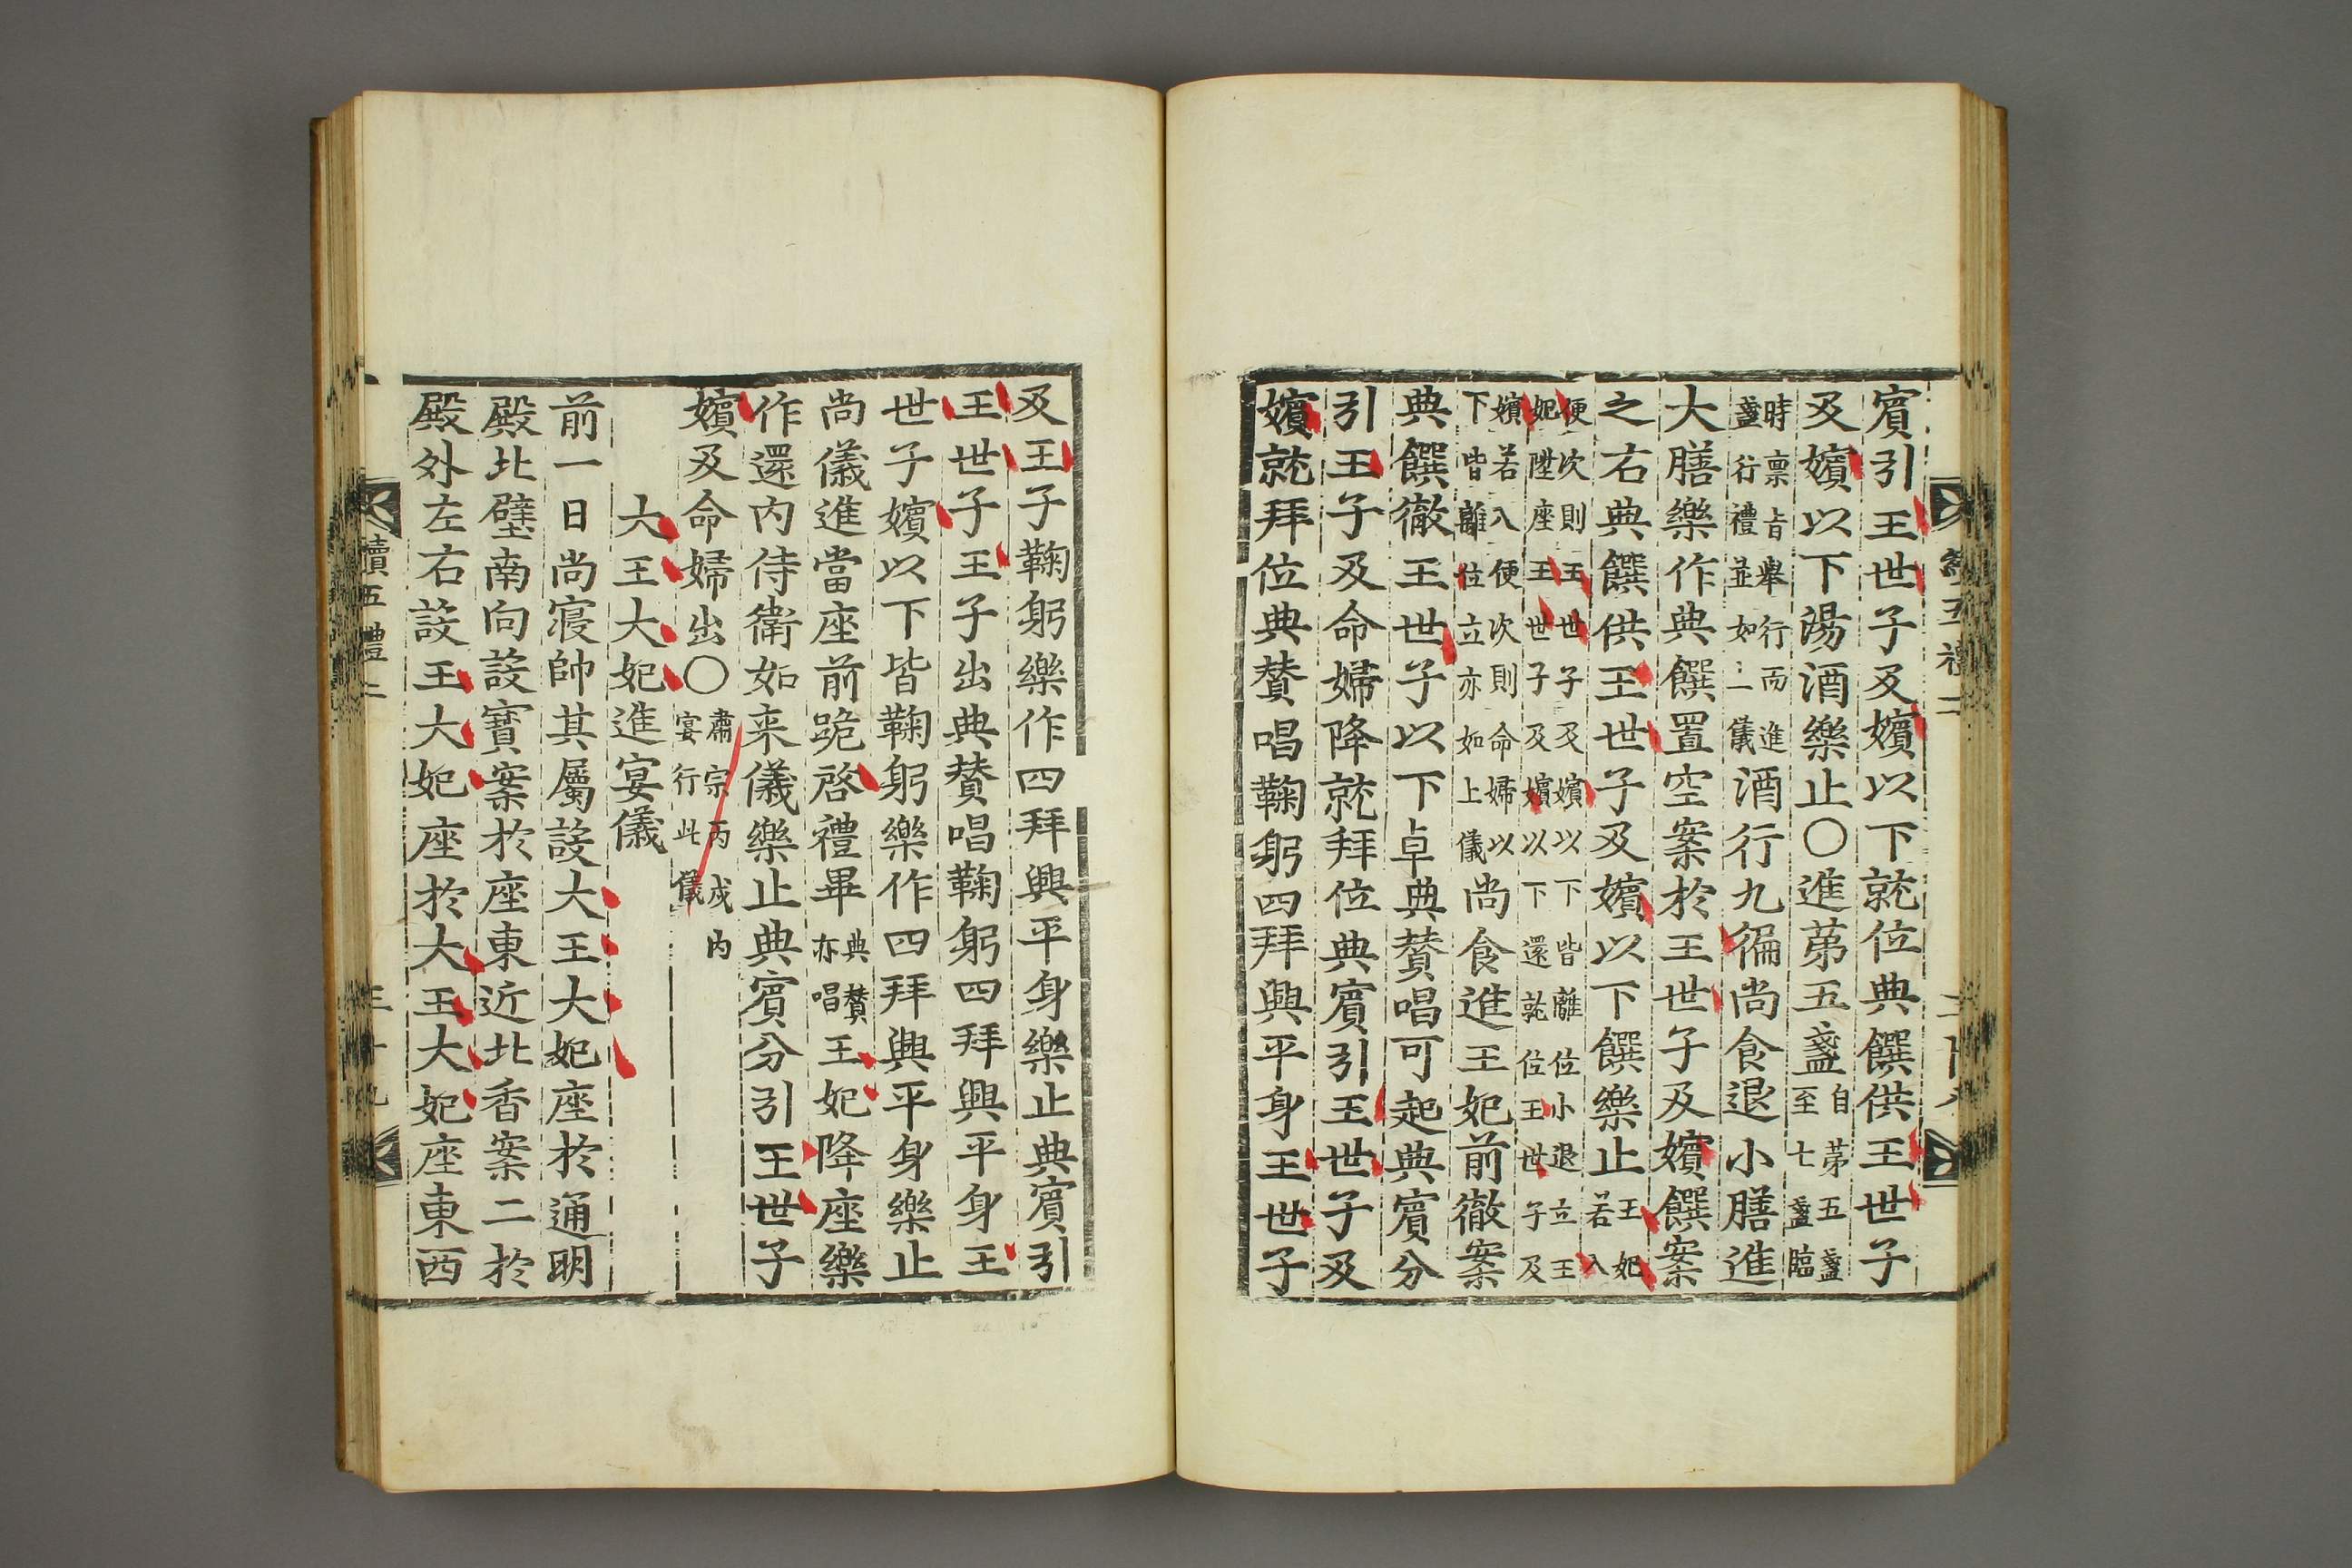 賓引王世子及嬪以下就位典饌供王世子
及嬪以下湯酒樂止〇進苐五盞自苐五盞至七盞臨
時禀旨舉行而進盞行禮並如上儀酒行九徧尚食退小膳進
大膳樂作典饌置空案於王世子及嬪饌案
之右典饌供王世子及嬪以下饌樂止王妃若入
便次則王世子及嬪以下皆離位小退立王妃陞座王世子及嬪以下還就位王世子及
嬪若入便次則命婦以下皆離位立亦如上儀尚食進王妃前徹案
典饌徹王世子以下卓典賛唱可起典賓分
引王子及命婦降就拜位典賓引王世子及
嬪就拜位典賛唱鞠躬四拜興平身王世子
及王子鞠躬樂作四拜興平身樂止典賓引
王世子王子出典賛唱鞠躬四拜興平身王
世子嬪以下皆鞠躬樂作四拜興平身樂止
尚儀進當座前跪啓禮畢典賛亦唱王妃降座樂
作還內侍衛如來儀樂止典賓分引王世子
嬪及命婦出〇肅宗丙戌內宴行此儀
大王大妃進宴儀
前一日尚寢帥其屬設大王大妃座於通明
殿北壁南向設寶案於座東近北香案二於
殿外左右設王大妃座於大王大妃座東西
續五禮二
三十九